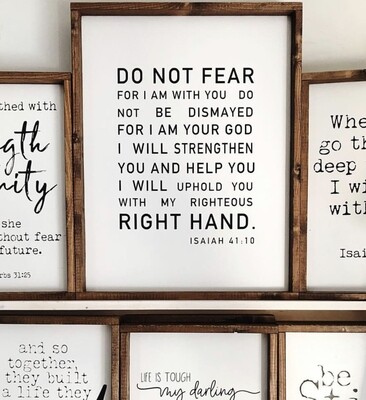 DO NOT FEAR
FOR I AM WITH YOU DO
NOT BE DISMAYED
FOR I AM YOUR GOD
I WILL STRENGTHEN
YOU AND HELP YOU
I WILL UPHOLD YOU
WITH MY RIGHTEOUS
RIGHT HAND.
ISAIAH 41:10
with
she
fear
future.
31:25
go
deep
I
and so
together
they built
a life they
LIFE IS TOUGH
my darling
be